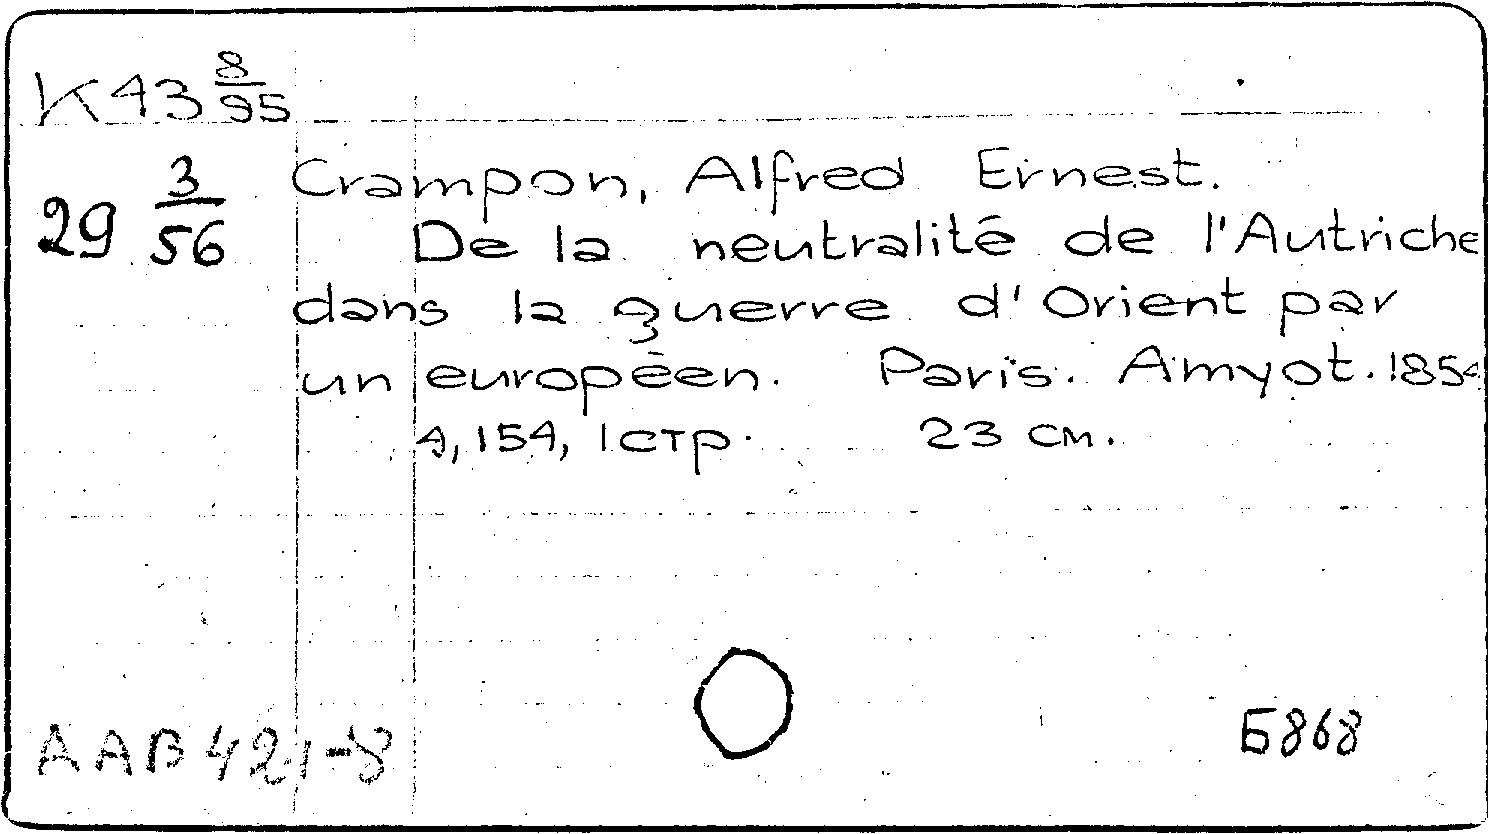 K43 8/95
29 3/56
Crampon, Alfred Ernest.
De la neutralité de l'Autriche
dans la guerre d'Orient par
un européen. Paris. Amyot. 1854
4, 154, 1 стр. 23 см.
AAB421-8
Б868